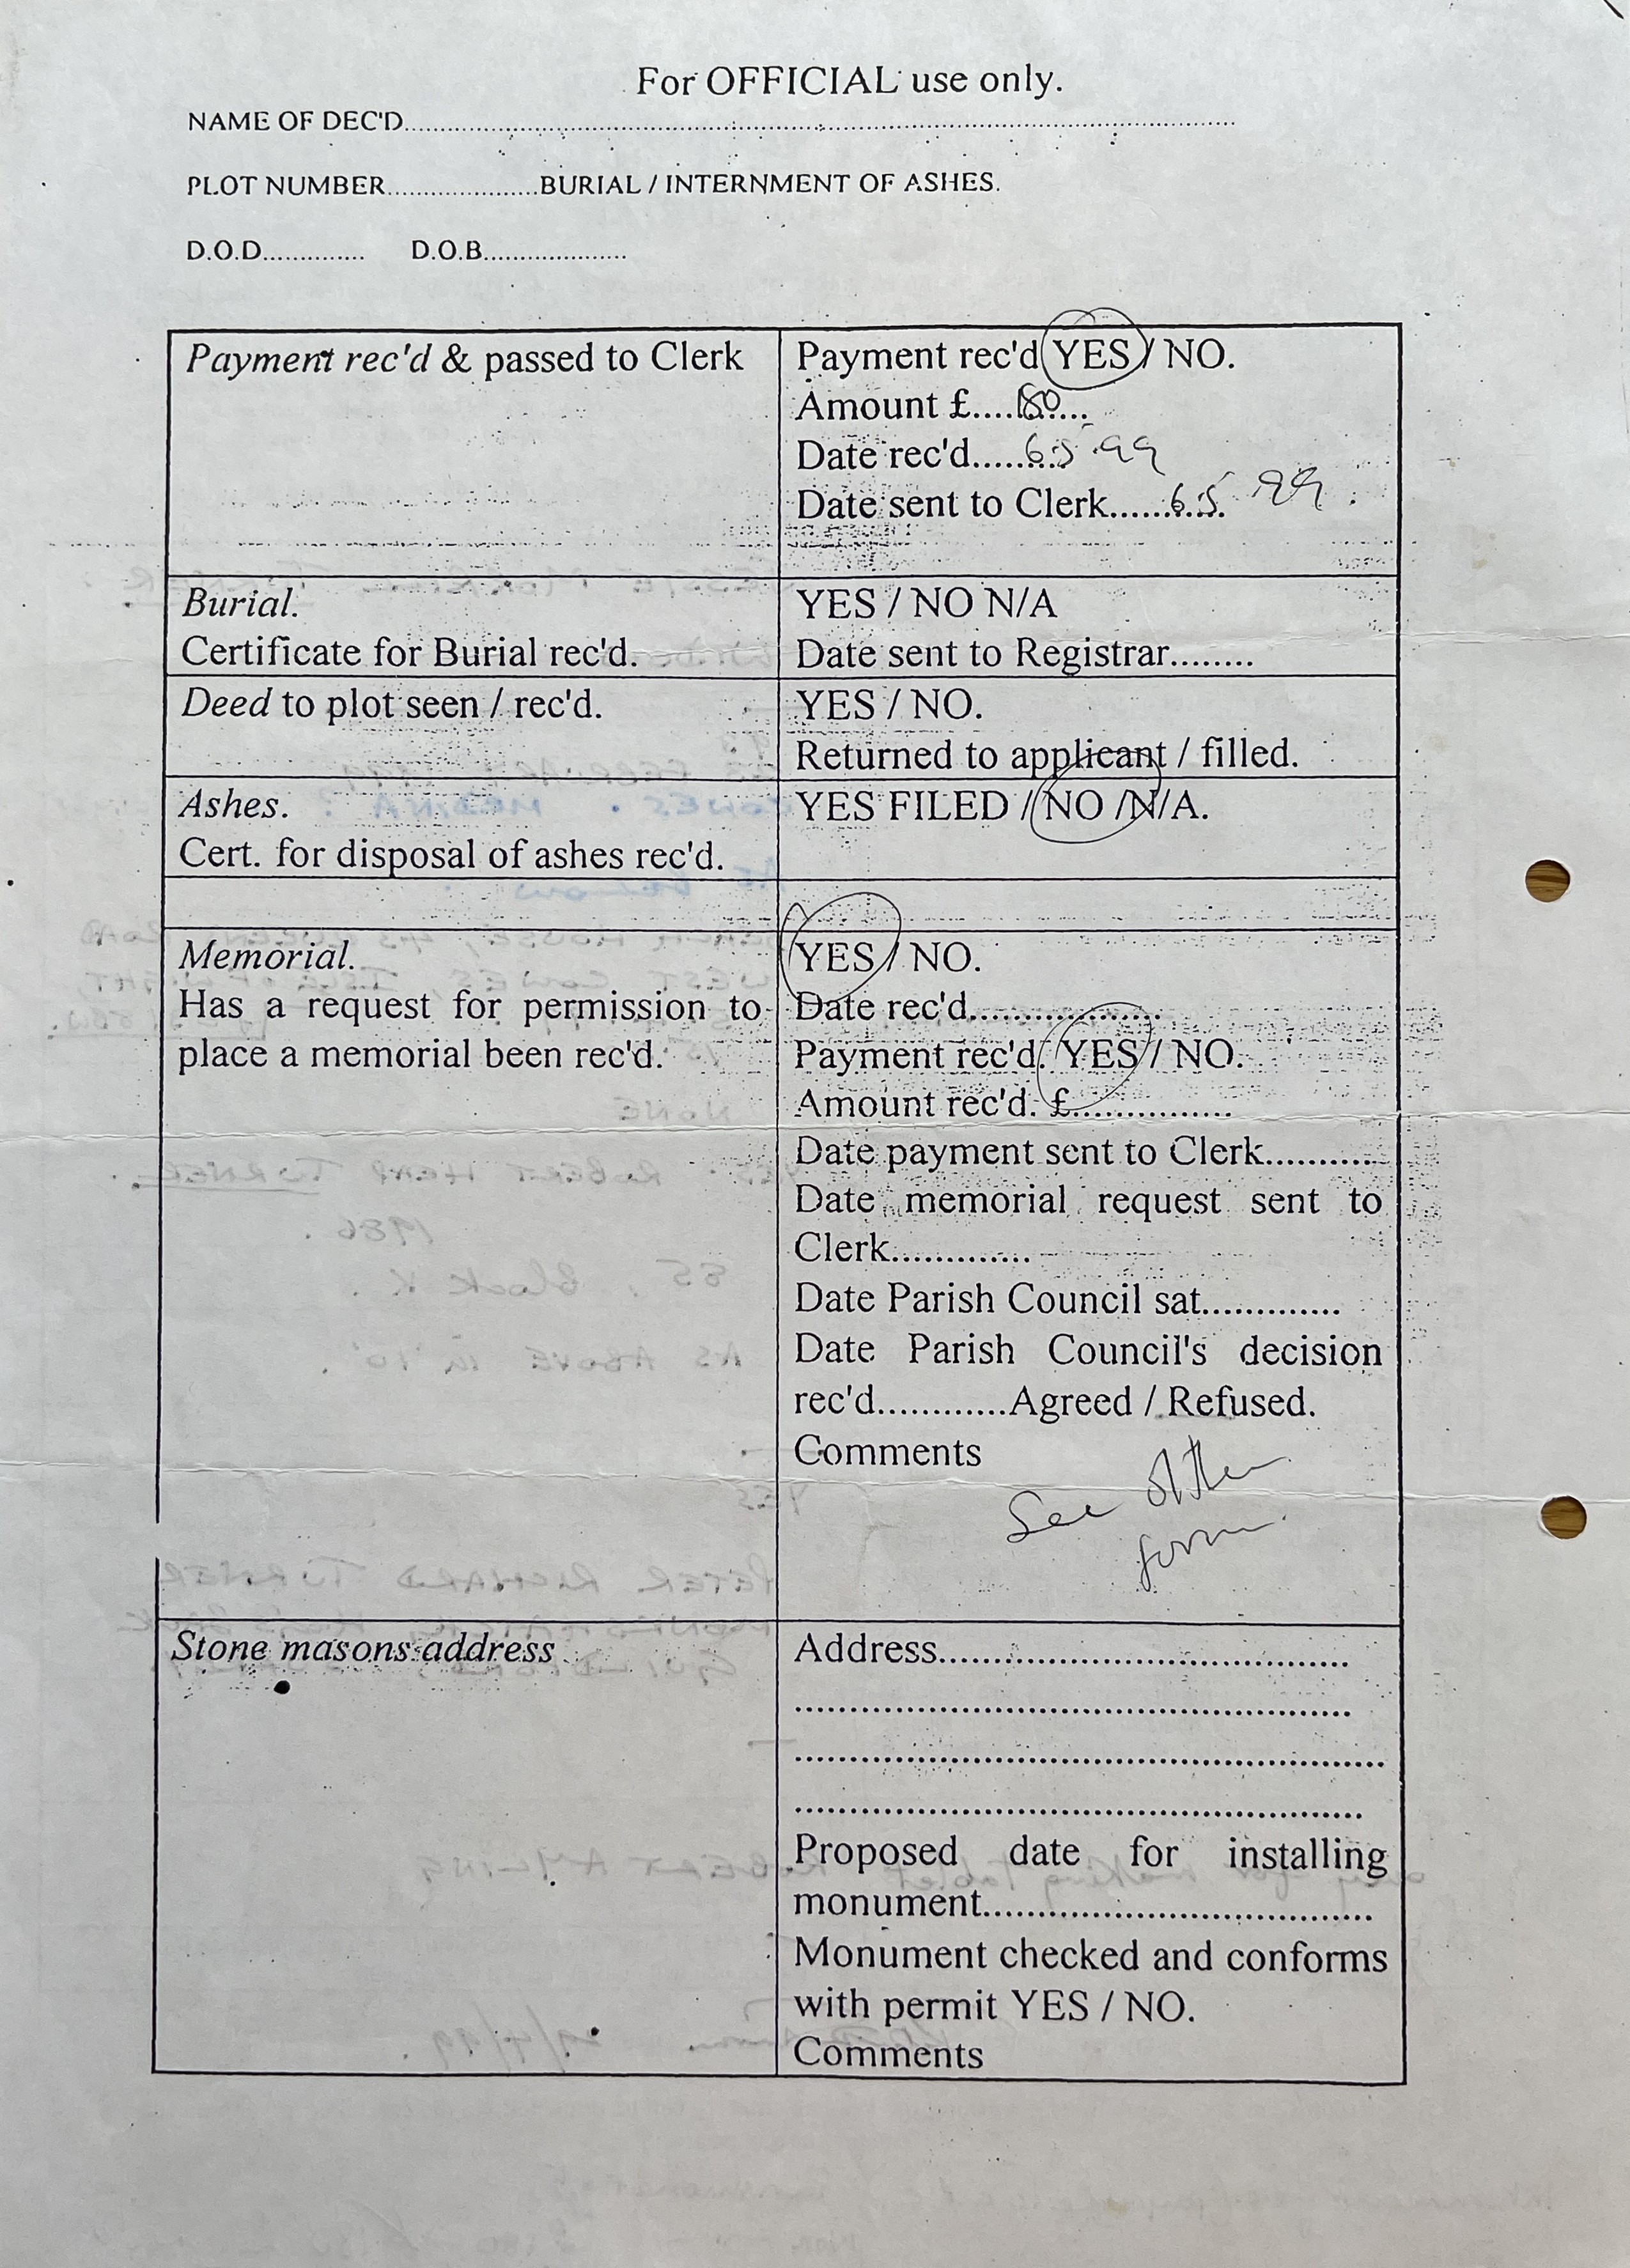 For OFFICIAL use only.
NAME OF DEC'D..........
PLOT NUMBER..........BURIAL / INTERNMENT OF ASHES.
D.O.D.......... D.O.B..........
Payment rec'd & passed to Clerk
Payment rec'd YES / NO.
Amount £....180....
Date rec'd....6.5.99
Date sent to Clerk....6.5.99.
Burial.
Certificate for Burial rec'd.
YES / NO N/A
Date sent to Registrar........
Deed to plot seen / rec'd.
YES / NO.
Returned to applicant / filled.
Ashes.
Cert. for disposal of ashes rec'd.
YES FILED / NO /N/A.
Memorial.
Has a request for permission to
place a memorial been rec'd.
YES / NO.
Date rec'd....................
Payment rec'd. YES / NO.
Amount rec'd. £................
Date payment sent to Clerk...........
Date memorial request sent to
Clerk.............
Date Parish Council sat.............
Date Parish Council's decision
rec'd............Agreed / Refused.
Comments
See other
form.
Stone masons address
Address......................................
..................................................
..................................................
..................................................
Proposed date for installing
monument...................................
Monument checked and conforms
with permit YES / NO.
Comments